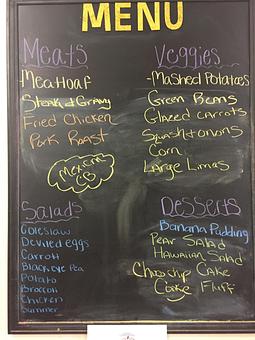 MENU
Meats
-Meatloaf
Steak & Gravy
Fried Chicken
Pork Roast
Mexican
CB
Veggies
-Mashed Potatoes
Green Beans
Glazed Carrots
Squash & onions
Corn
Large Limas
Salads
Coleslaw
Deviled eggs
Carrott
Black eye Pea
Potato
Broccoli
Chicken
Summer
Desserts
Banana Pudding
Pear Salad
Hawaiian Salad
Choc chip Cake
Fluff